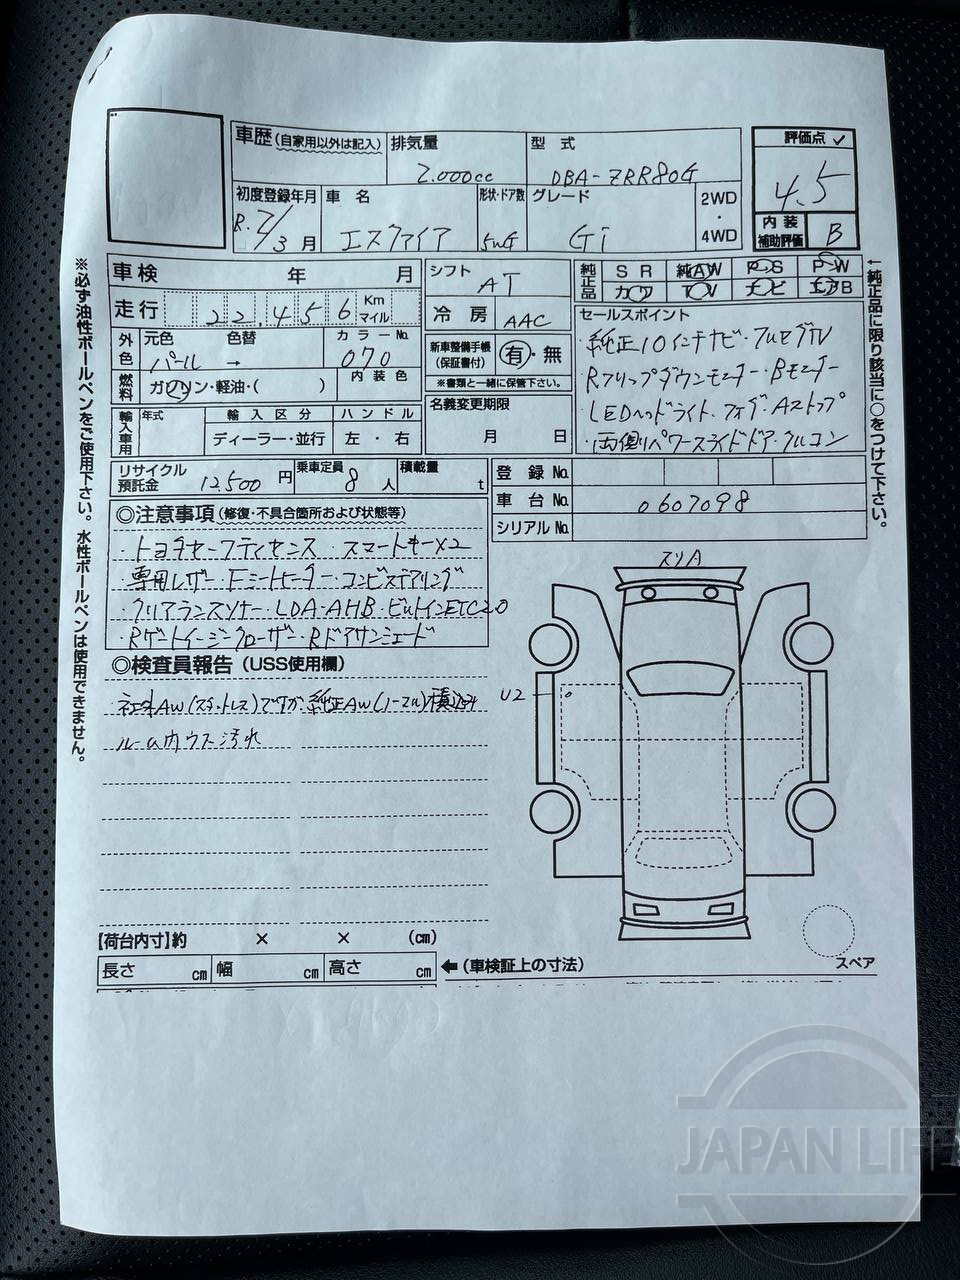 車歴(自家用以外は記入) 排気量 2.000cc 型式 DBA-ZRR80G 評価点 4.5
初度登録年月 R.2/3月 車名 エスクァイア 形状・ドア数 5WG グレード Gi 2WD・4WD 内装補助評価 B
車検 年 月
走行 22.456 Km マイル
シフト AT
冷房 AAC
純正品 SR 純AW PS PW
カワ TV ナビ エアB
外色 元色 パール 色替 → カラーNo. 070
内装色
燃料 ガソリン・軽油・( )
新車整備手帳(保証書付) 有・無
※書類と一緒に保管下さい。
輸入車用 年式 輸入区分 ディーラー・並行 ハンドル 左・右
名義変更期限 月 日
セールスポイント
・純正10インチナビ・フルセグTV
・Rフリップダウンモニター・Bモニター
・LEDヘッドライト、フォグ・Aストップ
・両側パワースライドドア・クルコン
リサイクル預託金 12.500円 乗車定員 8人 積載量 t
登録No.
車台No. 0607098
シリアルNo.
◎注意事項(修復・不具合箇所および状態等)
・トヨタセーフティセンス・スマートキーX2
・専用レザー・Fシートヒーター・コンビステアリング
・クリアランスソナー・LDA・AHB・ビルトインETC2.0
・Rゲートイージークローザー・Rドアサンシェード
◎検査員報告(USS使用欄)
・社外AW(スタットレス)ですが純正AW(ノーマル)積込み
ルーム内ウス汚れ
スリA
U2
【荷台内寸】約 × × (cm)
長さ cm 幅 cm 高さ cm ←(車検証上の寸法)
スペア
※必ず油性ボールペンをご使用下さい。水性ボールペンは使用できません。
←純正品に限り該当に○をつけて下さい。
JAPAN LIFE